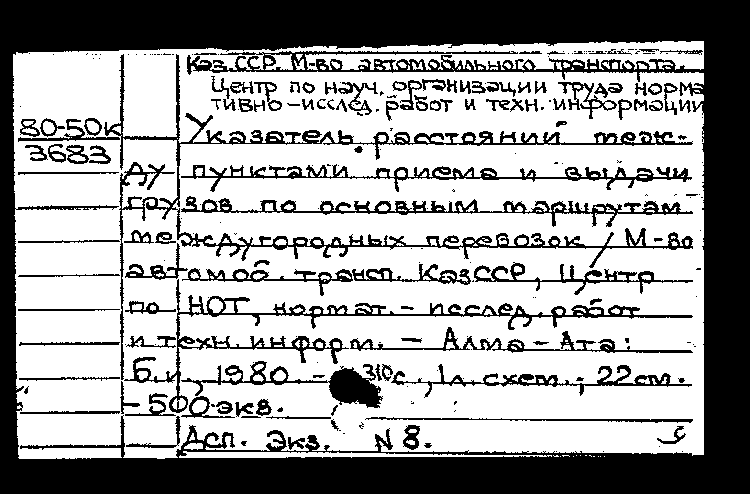 Каз.ССР. М-во автомобильного транспорта.
Центр по науч. организации труда норма
тивно-исслед. работ и техн. информации
80-50к
3683
Указатель расстояний меж-
ду пунктами приема и выдачи
грузов по основным маршрутам
междугородных перевозок / М-во
автомоб. трансп. КазССР, Центр
по НОТ, нормат.-исслед. работ
и техн. информ. - Алма-Ата:
Б.и., 1980. - 310с., 1л. схем.; 22см.
- 500 экз.
Дсп. Экз. N 8.